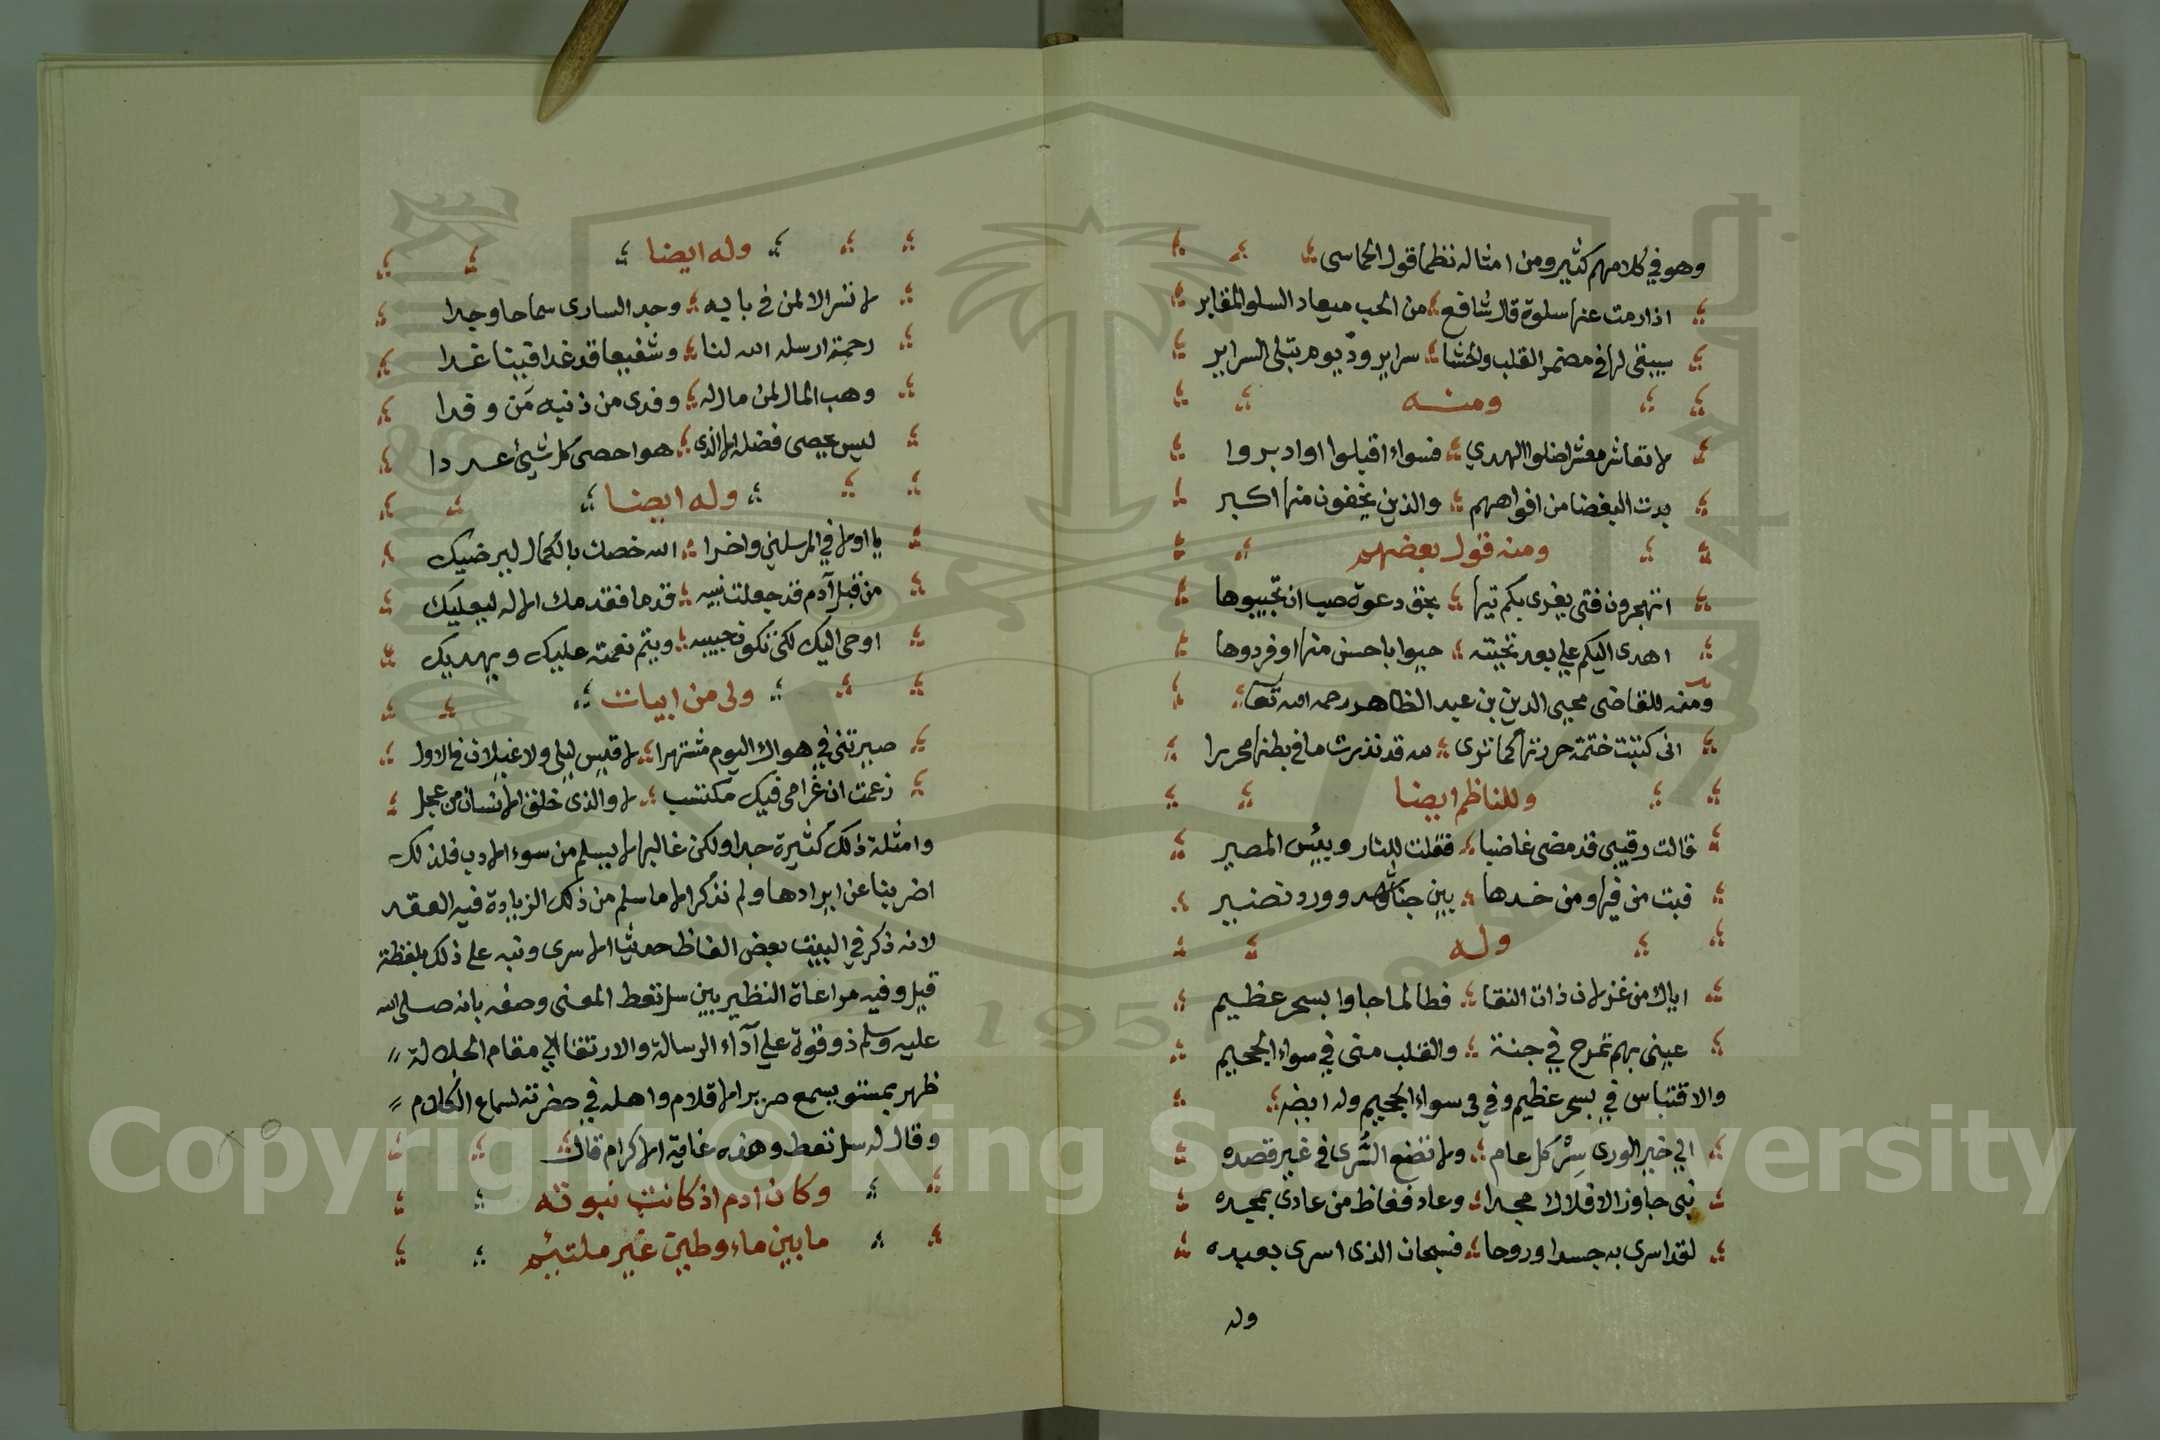 وهو في كلامهم كثير ومن امثاله نظما قول الحماسي
اذا رمت عنها سلوة قال شافع من الحب ميعاد السلو المقابر
سيبقى لها في مضمر القلب والحشا سراير ودّ يوم تبلى السراير
ومنه
لا تعاشر معشرا ضلوا الهدي فسواء اقبلوا او ادبروا
بدت البغضا من افواههم والذين يخفون منها اكبر
ومنه قول بعضهم
اتهجرون فتى يغرى بكم تيها بحق دعوة صب ان تجيبوها
اهدى اليكم علي بعد تحيته حيوا باحسن منها او فردوها
ومنه للقاضي محيي الدين بن عبد الظاهر رحمه الله تعا
انى كتبت ختمة حررتها كما ترى لله قد نذرت ما في بطنها محررا
وللناظم ايضا
قالت رقيبي قد مضى غاضبا فقلت للنار وبيس المصير
فبت من فيها ومن خدها بين جنا وورد نضير
وله
اياك من غزلان ذات النقا فطالما جاوا بسحر عظيم
عيني بهم تمرح في جنة والقلب منى في سواء الجحيم
والاقتباس في بسحر عظيم وفي في سواء الجحيم وله ايضه
الي خير الورى سِرْ كل عام ولا تضع السُّرى في غير قصده
نبي جاوز الافلاك مجدا وعاد فغاظ من عادى بمجده
لقد اسرى به جسدا وروحا فسبحان الذى اسرى بعبده
وله
وله ايضا
لا تسر الا لمن في بابه وجد السارى سماحا وجدا
رحمة ارسله الله لنا وشفيعا قد غدا فينا غدا
وهب المال لمن مال له وفدى من ذنبه مَن وفدا
ليس يحصى فضله الا الذي هو احصى كل شيئ عددا
وله ايضا
يا اولا في المرسلين واخرا الله خصك بالكمال ليرضيك
من قبل آدم قد جعلت نبيه قدما فقدمك الاله ليعليك
اوحى اليك لكى تكون حبيبه ويتم نعمته عليك ويهديك
ولى من ابيات
صيرتنى في هواك اليوم مشتهرا لا قيس ليلى ولا غيلان في الاول
زعمت ان غرامى فيك مكتسب لا والذى خلق الانسان من عجل
وامثلة ذلك كثيرة جدا ولكن غالبها لا يسلم من سوء الادب فلذلك
اضربنا عن ايرادها ولم نذكر الا ما سلم من ذلك الزيادة فيه العقد
لانه ذكر في البيت بعض الفاظ حديث الاسرى ونبه على ذلك بلفظة
قيل وفيه مراعاة النظير بين سل تعط المعنى وصفه بانه صلى الله
عليه وسلم ذو قوة علي آداء الرسالة والارتقا الي مقام الجلالة
ظهر بمستو يسمع صرير الاقلام واهله في حضرته لسماع الكلام
وقال له سل تعط وهذه غاية الاكرام قال
وكان ادم اذ كانت نبوته
ما بين ماء وطين غير ملتيئم
Copyright © King Saud University
1957